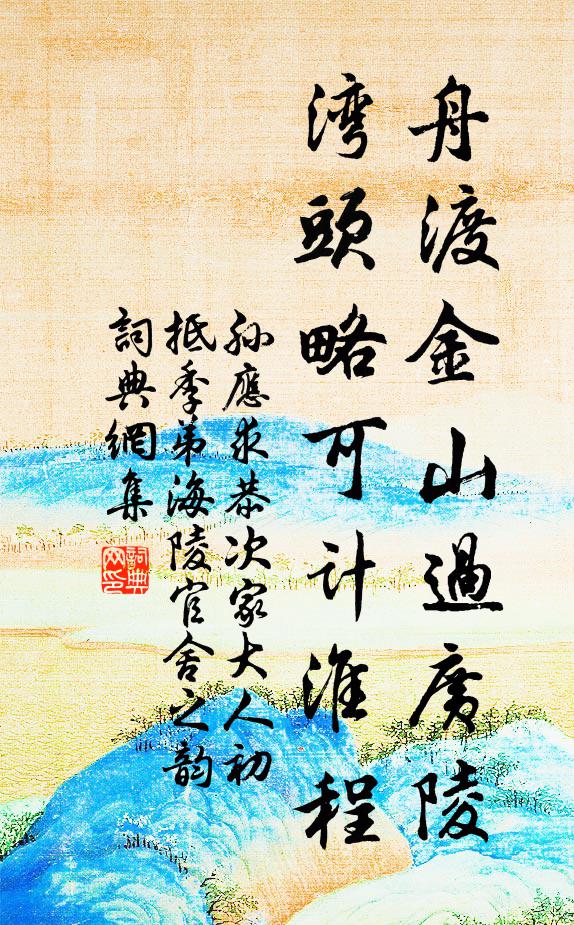 舟渡金山過廣陵
湾頭略可計淮程
孙應求恭次家大人初
抵季弟海陵官舍之韵
詞典網集
詞典
网印